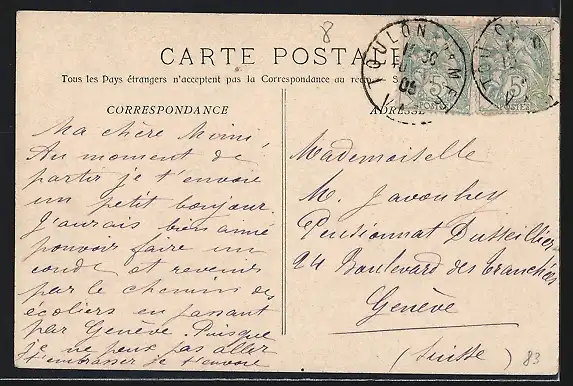 8
CARTE POSTALE
Tous les Pays étrangers n'acceptent pas la Correspondance au
CORRESPONDANCE
ADRESSE
TOULON
5
POSTES
5
POSTES
Ma chère Mimi,
Au moment de
partir je t'envoie
un petit bonjour.
J'aurais bien aimé
pouvoir faire un
coude et revenir
par le chemin des
écoliers en passant
par Genève. Puisque
je ne peux pas aller
t'embrasser je t'envoie
Mademoiselle
M.
Pensionnat
24 Boulevard des Tranchées
Genève
(Suisse)
83